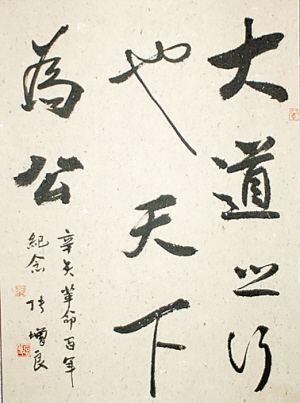 大道之行
也天下
為公
辛亥革命百年
紀念 張增良